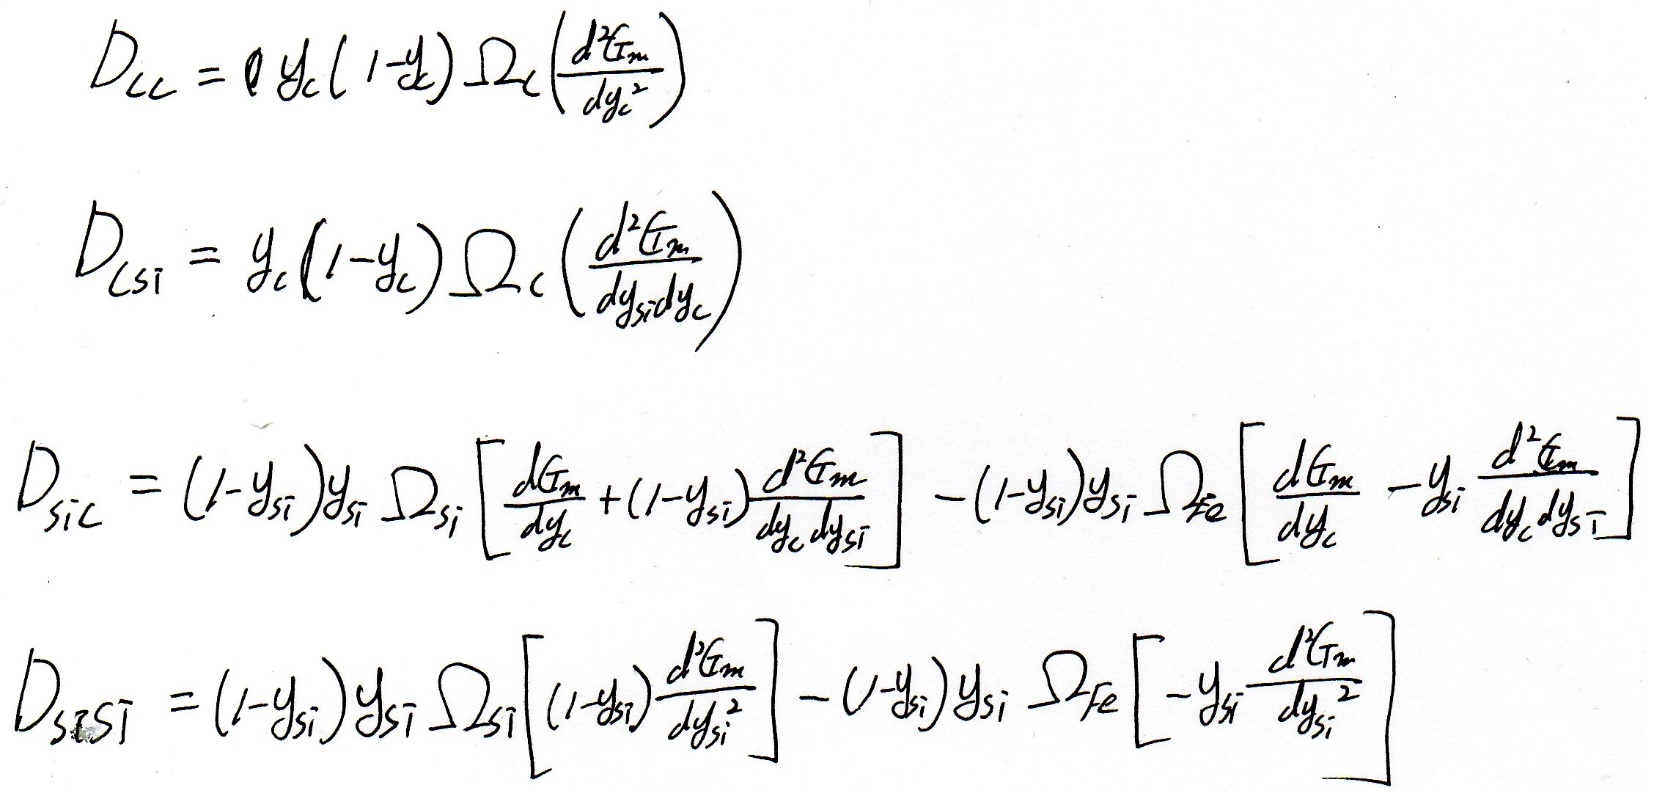 D_{cc} = y_c(1-y_c) Ω_c (d²G_m / dy_c²)
D_{cSi} = y_c(1-y_c) Ω_c (d²G_m / dy_{Si}dy_c)
D_{SiC} = (1-y_{Si})y_{Si} Ω_{Si} [dG_m/dy_c + (1-y_{Si}) d²G_m/dy_c dy_{Si}] - (1-y_{Si})y_{Si} Ω_{Fe} [dG_m/dy_c - y_{Si} d²G_m/dy_c dy_{Si}]
D_{SiSi} = (1-y_{Si})y_{Si} Ω_{Si} [(1-y_{Si}) d²G_m/dy_{Si}²] - (1-y_{Si})y_{Si} Ω_{Fe} [-y_{Si} d²G_m/dy_{Si}²]